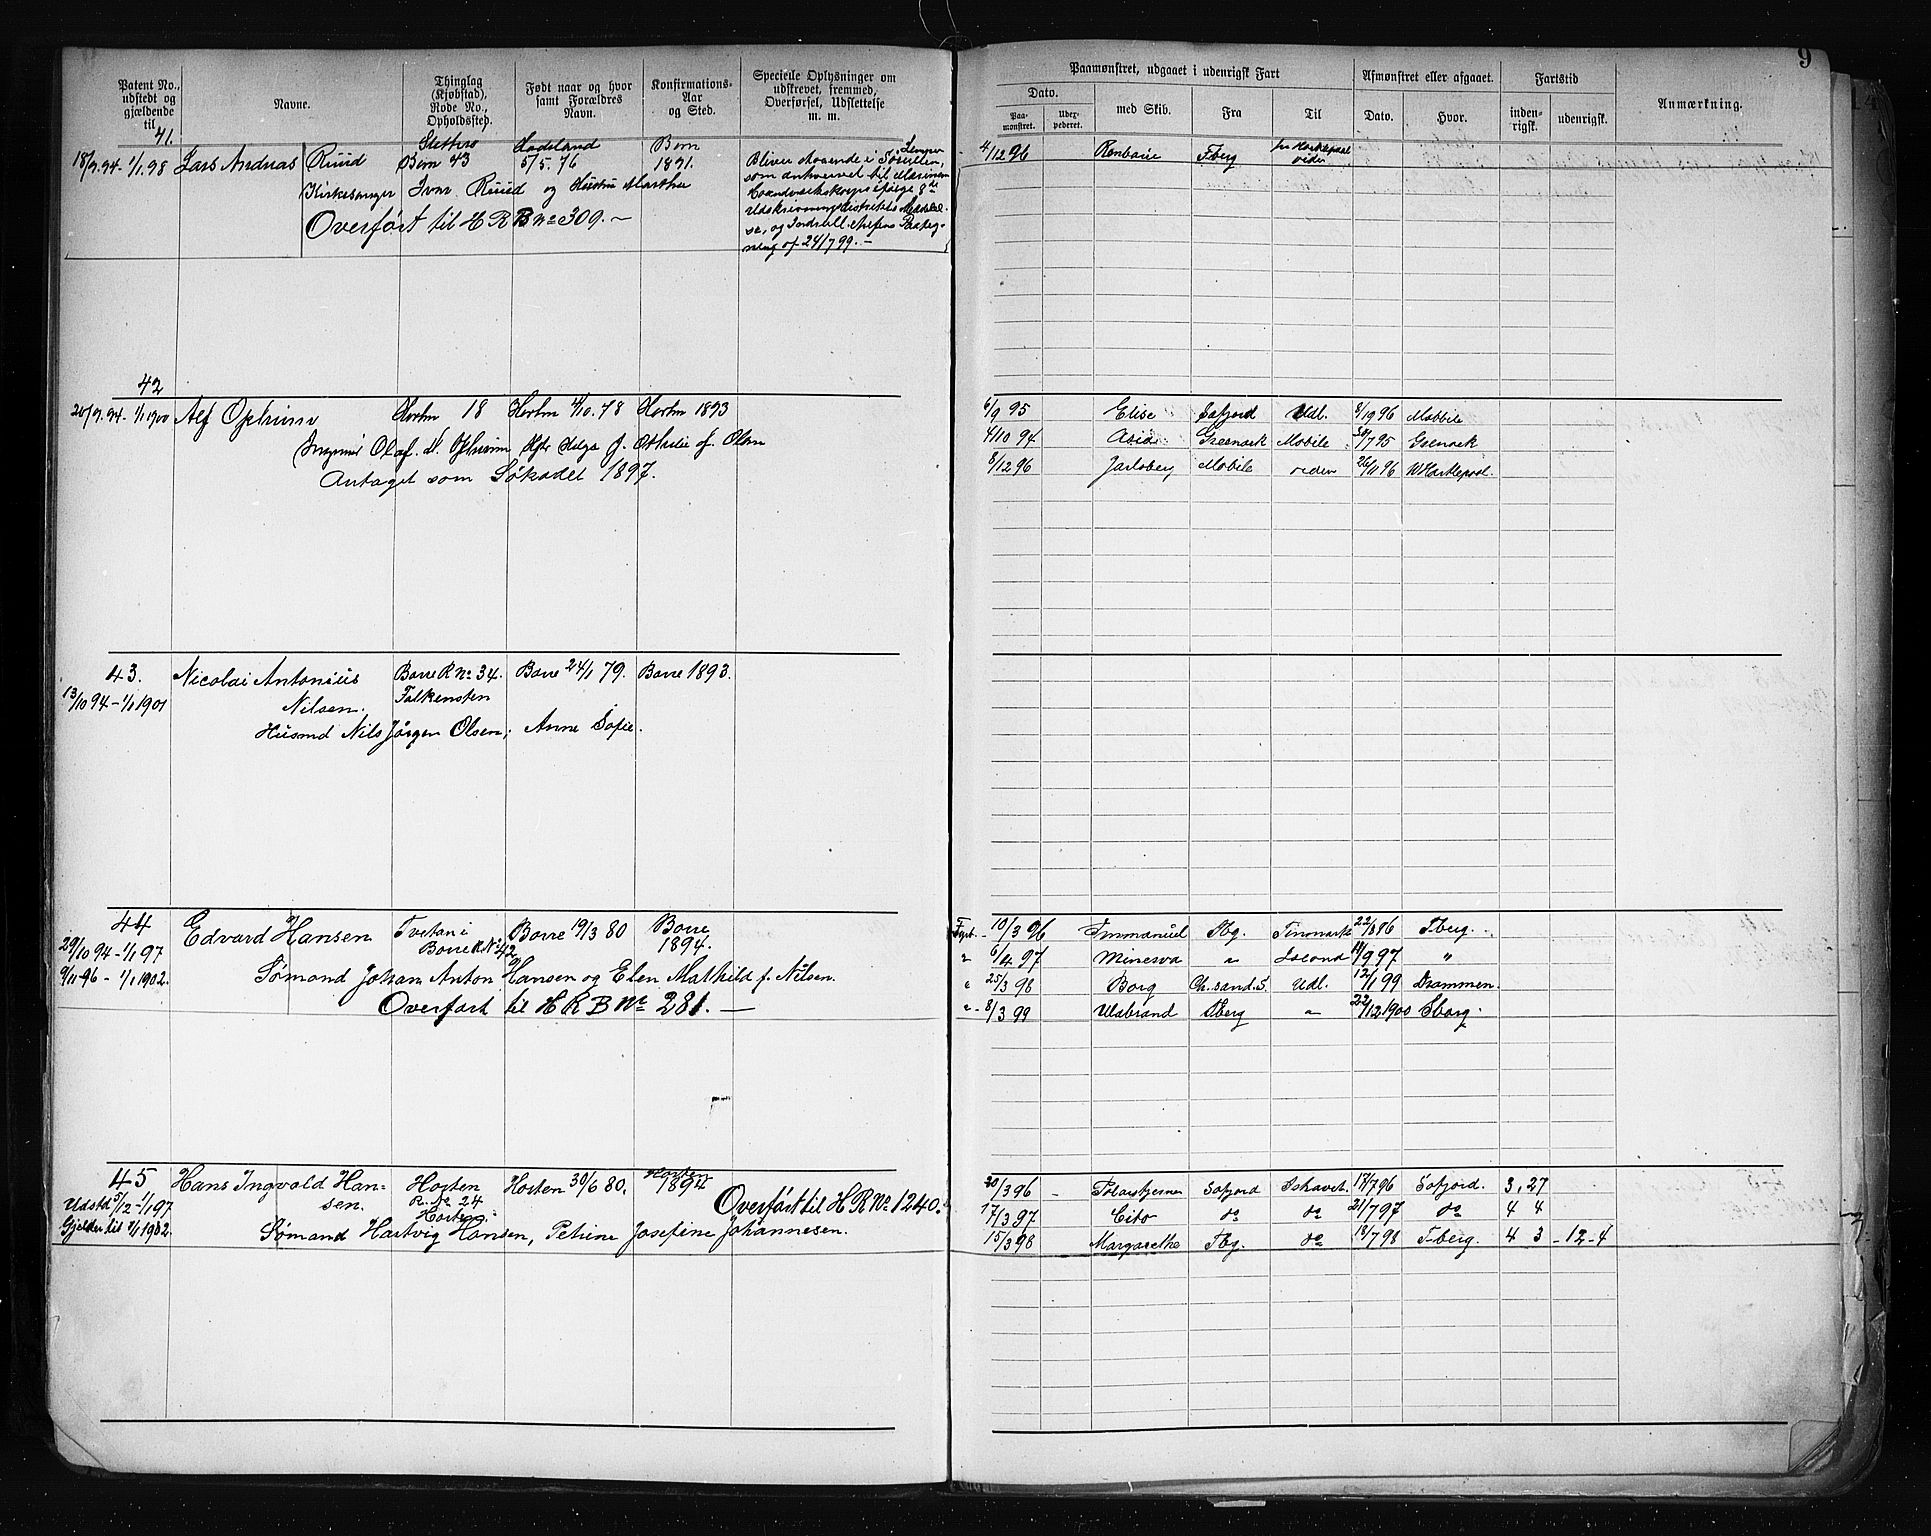 9
Patent No., udstedt og gjældende til
Navne.
Thinglag (Kjøbstad), Rode No., Opholdssted.
Født naar og hvor samt Forældres Navn.
Konfirmations-Aar og Sted.
Specielle Oplysninger om udskrevet, fremmed, Overførsel, Udslettelse m. m.
Paamønstret, udgaaet i udenrigsk Fart
Dato.
Paa-mønstret.
Udex-pederet.
med Skib.
Fra
Til
Afmønstret eller afgaaet.
Dato.
Hvor.
Fartstid
inden-rigsk.
udenrigsk.
Anmærkning.
41.
18/9.94-1/1.98 Lars Andreas Ruud
Borre 43
5/5.76
1891.
Kirkesanger Ivar Ruud og Hustru Marthe
Overført til H R B No 309.-
Bliver staaende i
24/7 99.-
4/12 96
Tberg
42
20/9.94-1/1 1900 Alf Ophum Horten 18 Horten 4/10.78 Horten 1893
Olaf. M. Ophum
Antaget som Søkadet 1897.
6/9 95 Elise Udl. 8/10 96 Mobbile
4/10 94 Asia Mobile 30/7 95
8/12 96 Jarlsberg Mobile viden 26/11 96 W Hartlepool.
43.
13/10 94-1/1 1901 Nicolai Antonius Nilsen. Borre R No 34. Falkensten Borre 24/1 79. Borre 1893.
Husmd Nils Jörgen Olsen, Anne Sofie.
44
29/10 94-1/1 97 Edvard Hansen Tvetan i Borre R No 42 Borre 19/3 80 Borre 1894.
9/11-96 - 1/1 1902. Sømand Johan Anton Hansen og Elen Mathild f. Nilsen.
Overført til H R B No 281.-
10/3 96 Immanuel Tbg. Finmark 22/8 86 Tberg.
6/4 97 Minerva " Island 14/9 97 "
25/3 98 Borg Ch.sand.S. Udl. 12/1 99 Drammen.
8/3 99 Ulabrand " 22/12 1900
45
Udstd 5/12-1/1 97 Hans Ingvald Hansen. Horten R. No 24 Horten Horten 30/6 80. Horten 1894
Overført til H R No 1240.
Gjelder til 1/1 1902. Sømand Hartvig Hansen, Petrine Josefine Johannesen.
20/3 96 - Polarstjernen Ishavet. 17/7 96 3.27
17/3 97 Cito do do 21/7 97 do 4 4
15/3 98 Margarethe Tbg. do 18/7 98 T-berg. 4 3 - 12-4